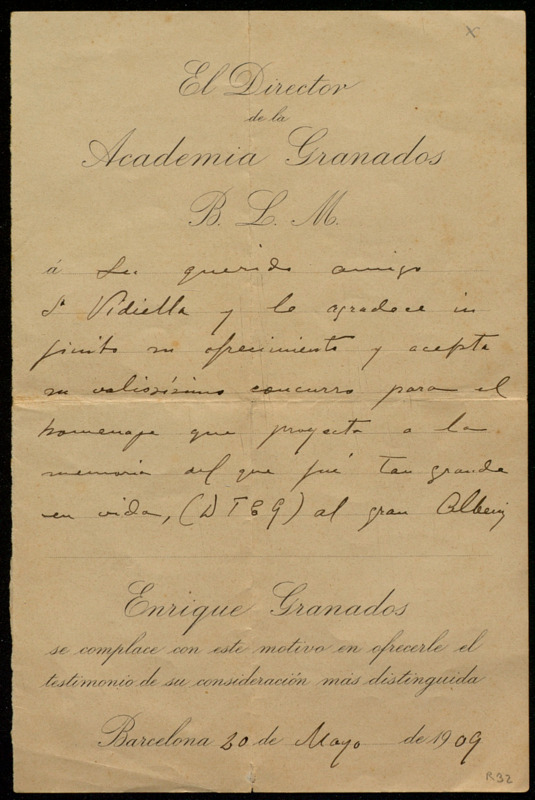 x
El Director
de la
Academia Granados
B. L. M.
á su querido amigo
Sr Vidiella y le agradece in
finito su ofrecimiento y acepta
su valiosísimo concurso para el
homenage que proyecta a la
memoria del que fué tan grande
en vida, (DTEG) al gran Albeniz
Enrique Granados
se complace con este motivo en ofrecerle el
testimonio de su consideración más distinguida
Barcelona 20 de Mayo de 1909
R32